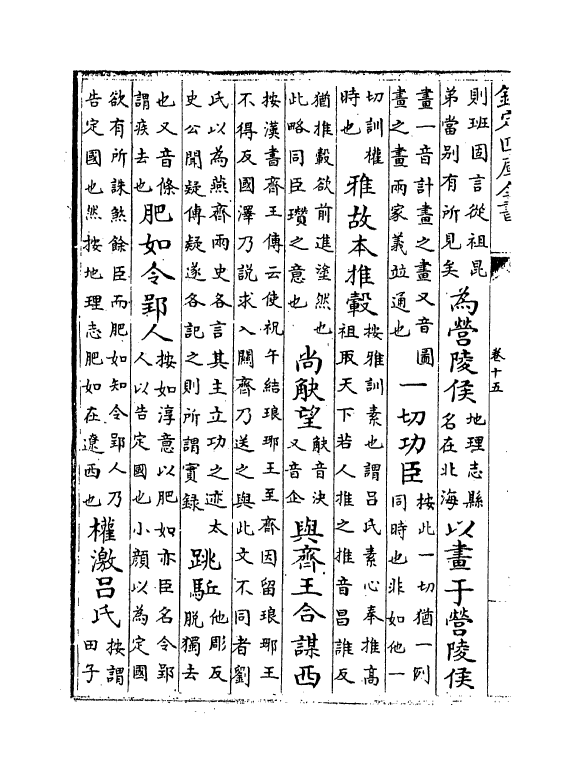 欽定四庫全書
卷十五
則班固言從祖昆
弟當别有所見矣
為營陵侯
地理志縣
名在北海
以畫于營陵侯
畫一音計畫之畫又音圖
畫之畫兩家義並通也
一切功臣
按此一切猶一例
同時也非如他一
切訓權
時也
雅故本推轂
按雅訓素也謂吕氏素心奉推高
祖取天下若人推之推音昌誰反
猶推轂欲前進塗然也
此略同臣瓚之意也
尚觖望
觖音决
又音企
與齊王合謀西
按漢書齊王傳云使祝午結琅邪王至齊因留琅邪王
不得反國澤乃說求入關齊乃送之與此文不同者劉
氏以為燕齊兩史各言其主立功之迹太
史公聞疑傳疑遂各記之則所謂實録
跳駈
他彫反
脱獨去
也又音條
謂疾去也
肥如令郢人
按如淳意以肥如亦臣名令郢
人以告定國也小顔以為定國
欲有所誅煞餘臣而肥如知令郢人乃
告定國也然按地理志肥如在遼西也
權激吕氏
按謂
田子